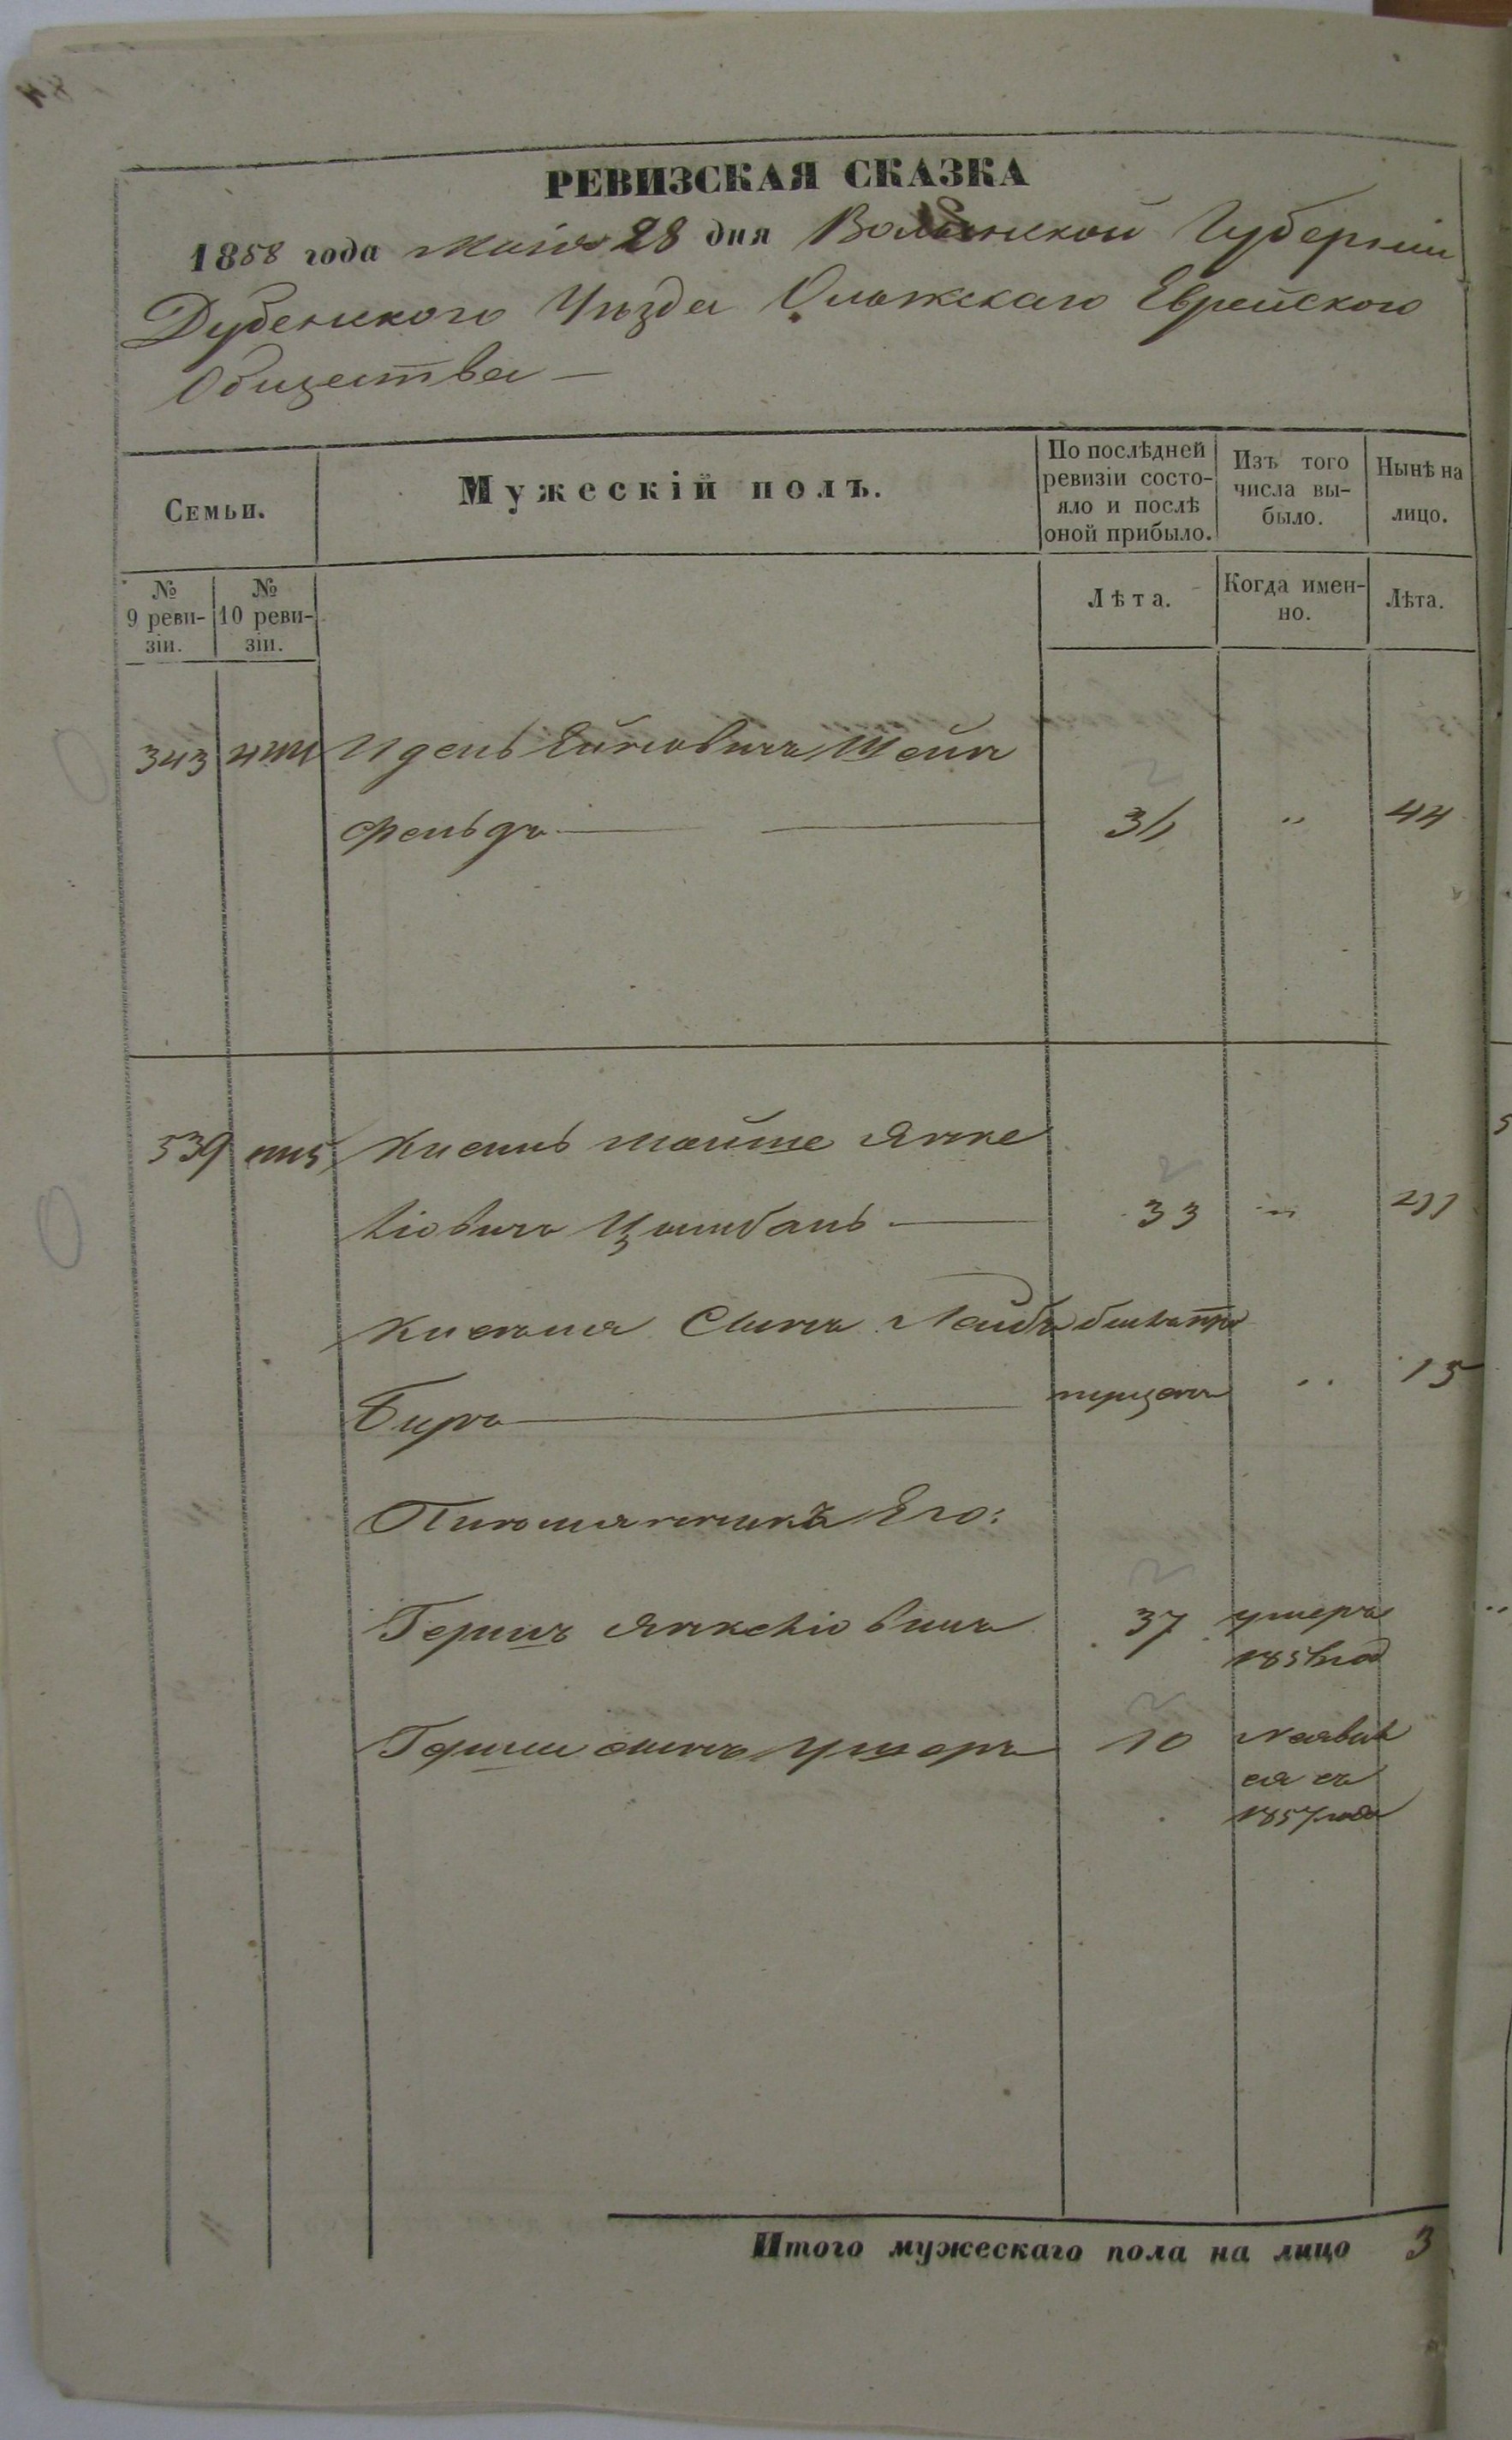 РЕВИЗСКАЯ СКАЗКА
1858 года Маія 28 дня Волынской Губерніи
Дубенского Уѣзда Олыжскаго Еврейского
Общества —
Семьи.
Мужескій полъ.
По послѣдней ревизіи состо-
яло и послѣ оной прибыло.
Изъ того числа вы-
было.
Нынѣ на лицо.
№ 9 реви-
зіи.
№ 10 реви-
зіи.
Лѣта.
Когда имен-
но.
Лѣта.
343 Идель Шейн
фельдъ 36 " 44
539 Кисель Мойше Янке
ліовичъ Цымбаль 33 "
Киселя Сынъ Лейбъ
Биръ " 15
Племянникъ Его:
Гершъ Янкеліовичъ 37 умеръ
185 год
Герша сынъ Ушеръ 10
ся съ
1857 года
Итого мужескаго пола на лицо 3